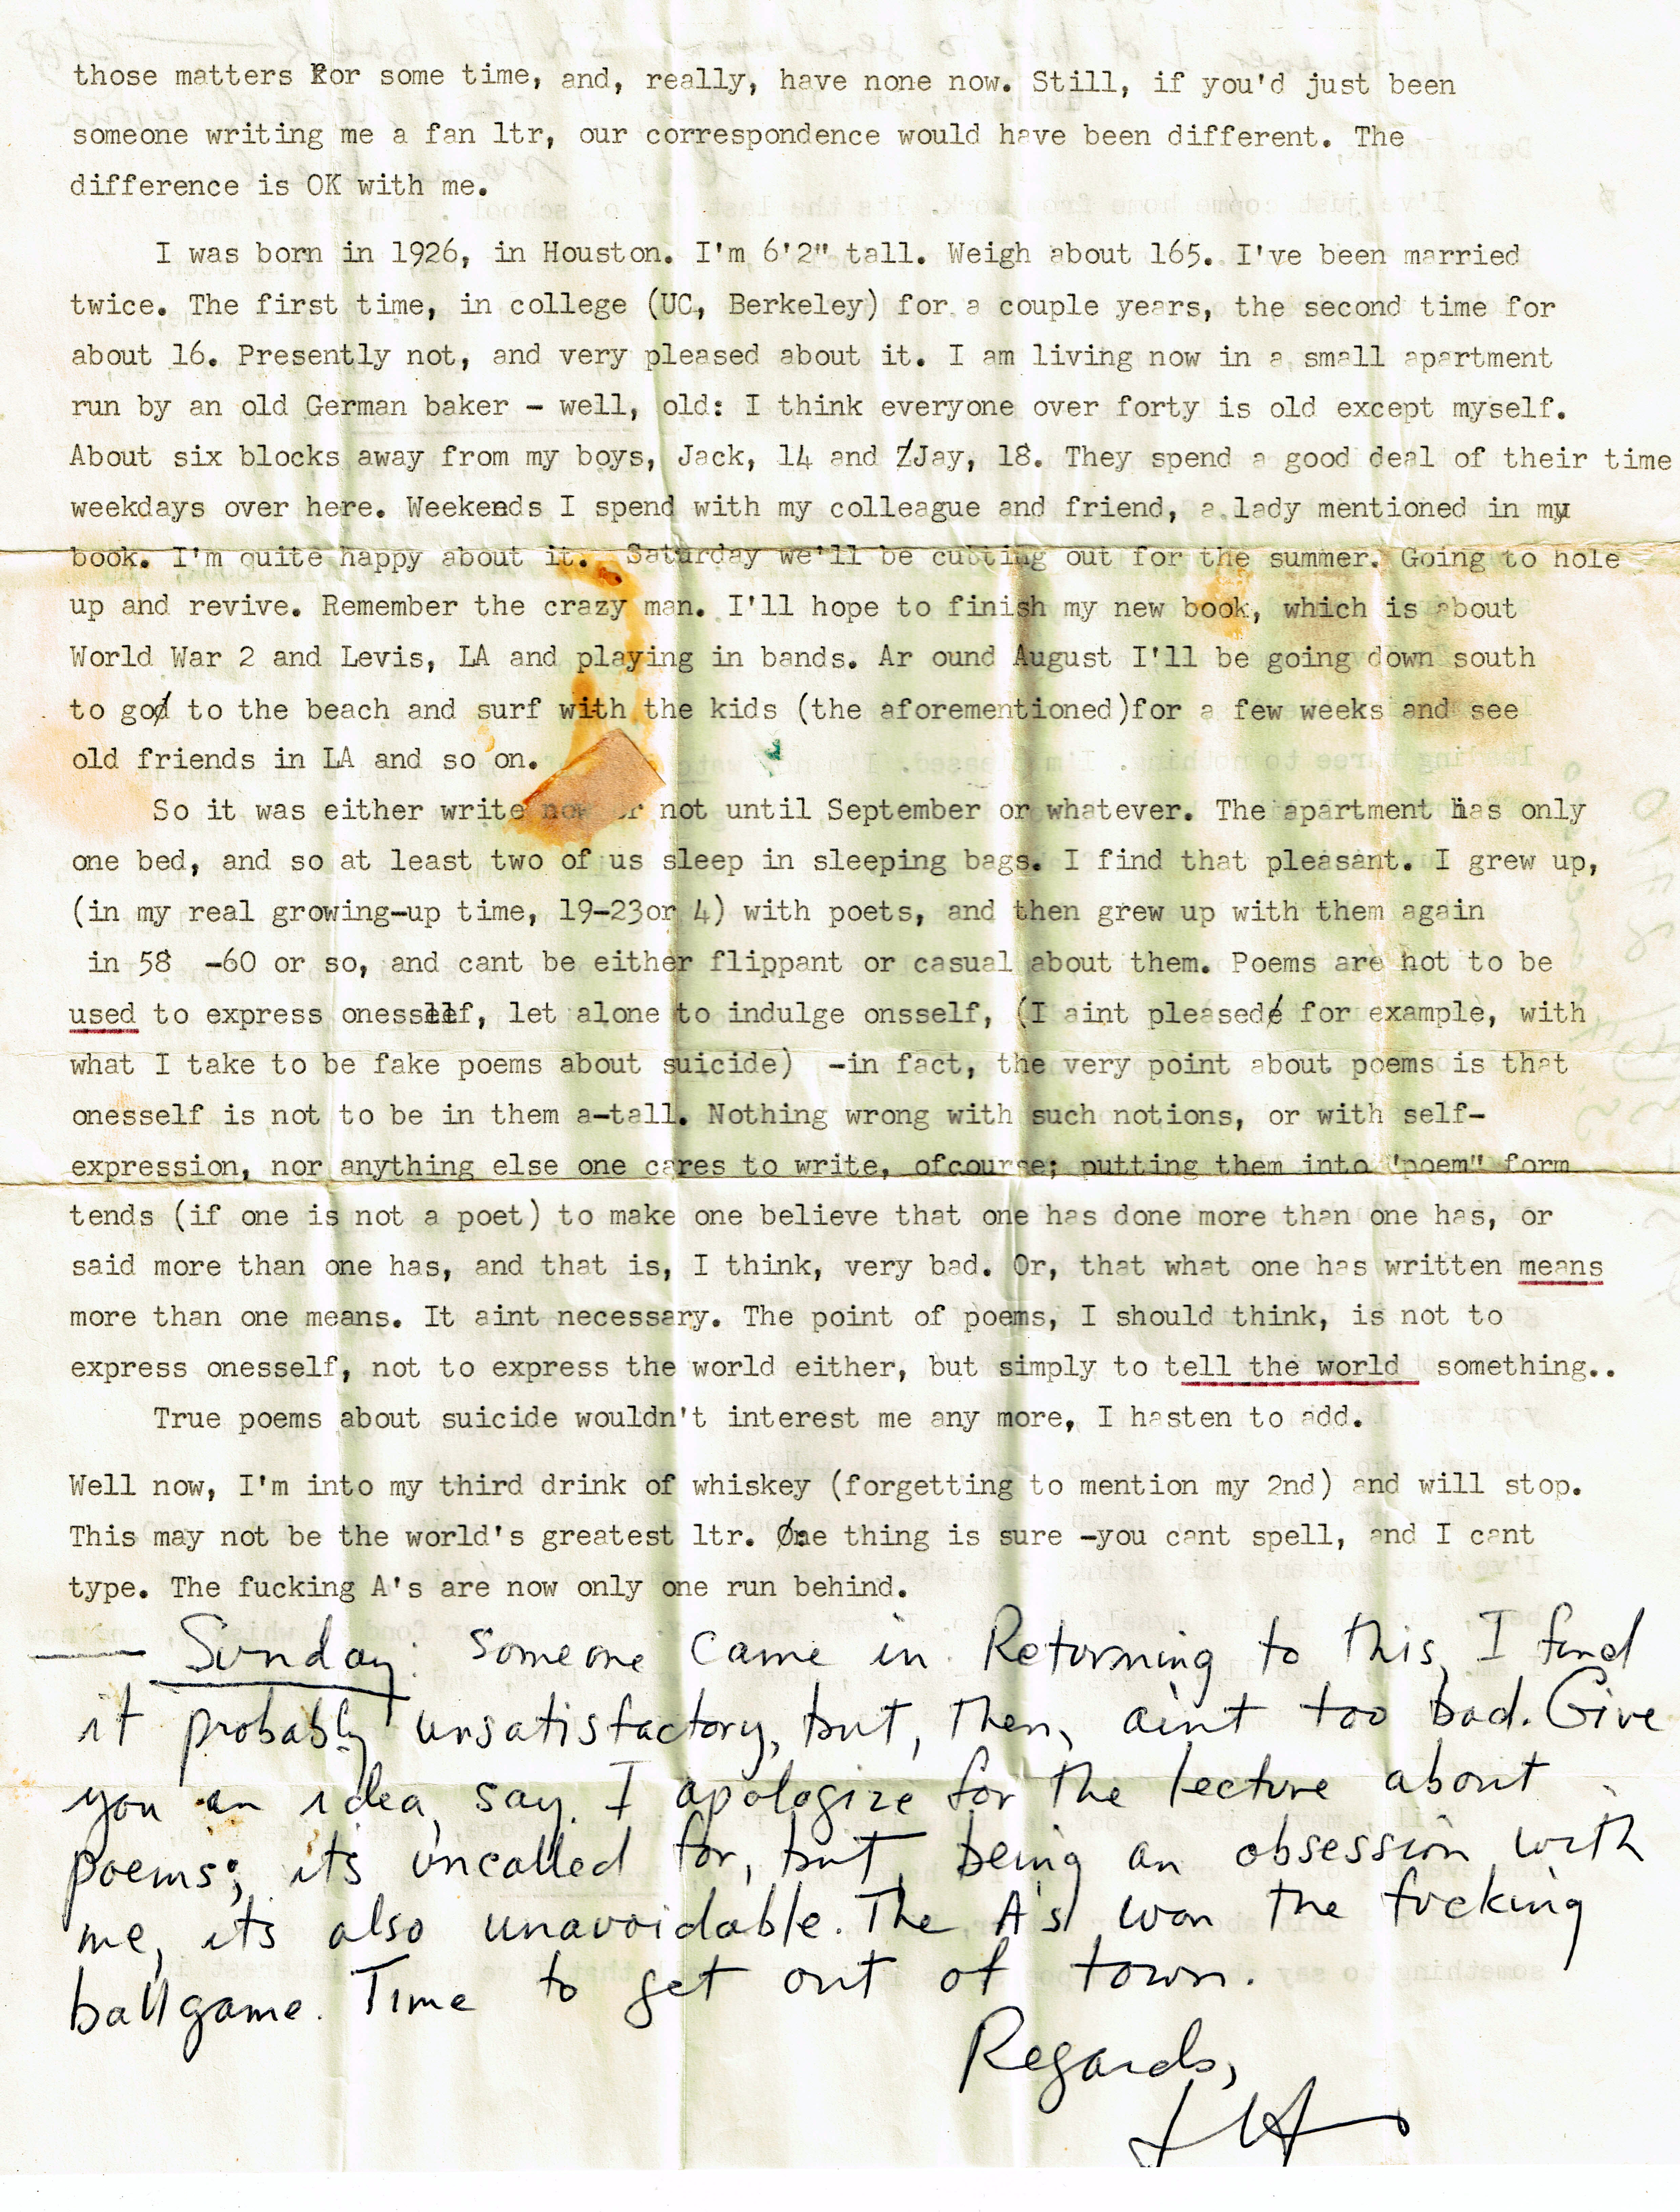 those matters for some time, and, really, have none now. Still, if you'd just been
someone writing me a fan ltr, our correspondence would have been different. The
difference is OK with me.
I was born in 1926, in Houston. I'm 6'2" tall. Weigh about 165. I've been married
twice. The first time, in college (UC, Berkeley) for a couple years, the second time for
about 16. Presently not, and very pleased about it. I am living now in a small apartment
run by an old German baker - well, old: I think everyone over forty is old except myself.
About six blocks away from my boys, Jack, 14 and Jay, 18. They spend a good deal of their time
weekdays over here. Weekends I spend with my colleague and friend, a lady mentioned in my
book. I'm quite happy about it. Saturday we'll be cutting out for the summer. Going to hole
up and revive. Remember the crazy man. I'll hope to finish my new book, which is about
World War 2 and Levis, LA and playing in bands. Ar ound August I'll be going down south
to go to the beach and surf with the kids (the aforementioned)for a few weeks and see
old friends in LA and so on.
So it was either write now or not until September or whatever. The apartment has only
one bed, and so at least two of us sleep in sleeping bags. I find that pleasant. I grew up,
(in my real growing-up time, 19-23or 4) with poets, and then grew up with them again
in 58 -60 or so, and cant be either flippant or casual about them. Poems are not to be
used to express onesself, let alone to indulge onsself, (I aint pleased for example, with
what I take to be fake poems about suicide) -in fact, the very point about poems is that
onesself is not to be in them a-tall. Nothing wrong with such notions, or with self-
expression, nor anything else one cares to write, ofcourse; putting them into 'poem" form
tends (if one is not a poet) to make one believe that one has done more than one has, or
said more than one has, and that is, I think, very bad. Or, that what one has written means
more than one means. It aint necessary. The point of poems, I should think, is not to
express onesself, not to express the world either, but simply to tell the world something..
True poems about suicide wouldn't interest me any more, I hasten to add.
Well now, I'm into my third drink of whiskey (forgetting to mention my 2nd) and will stop.
This may not be the world's greatest ltr. One thing is sure -you cant spell, and I cant
type. The fucking A's are now only one run behind.
— Sunday: someone came in. Returning to this, I find
it probably unsatisfactory, but, then, aint too bad. Give
you an idea, say. I apologize for the lecture about
poems; its uncalled for, but, being an obsession with
me, its also unavoidable. The A's won the fucking
ballgame. Time to get out of town.
Regards,